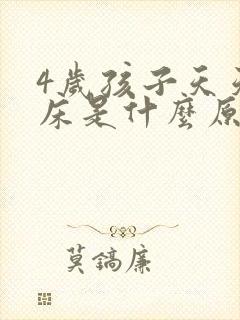 4歲孩子天天
床是什麼原
莫鎬廉